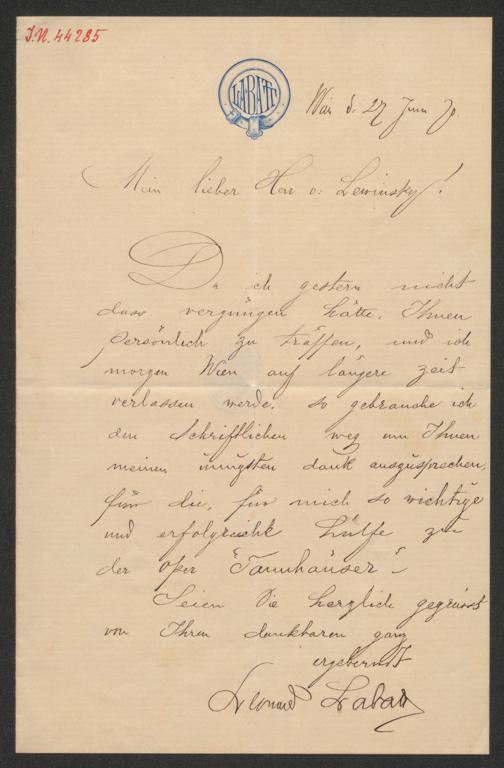 J.N. 44285
LABATT
Wien d. 27 Juni 70.
Mein lieber Herr v: Lewinsky!
Da ich gestern nicht
dass vergnügen hätte, Ihnen
persönlich zu träffen, und ich
morgen Wien auf längere zeit
verlassen werde, so gebrauche ich
den Schriftlichen weg um Ihnen
meinen innigsten dank auszusprechen,
für die, für mich so wichtige
und erfolgreiche hülfe zu
der oper "Tannhäuser"-
Seien Sie herzlich gegrüsst
von Ihren dankbaren ganz
ergebenst
Leonard Labatt